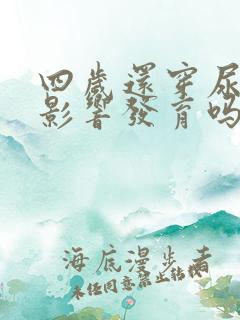 四歲還穿尿
影響發育嗎
海底漫步者
未经同意禁止转载